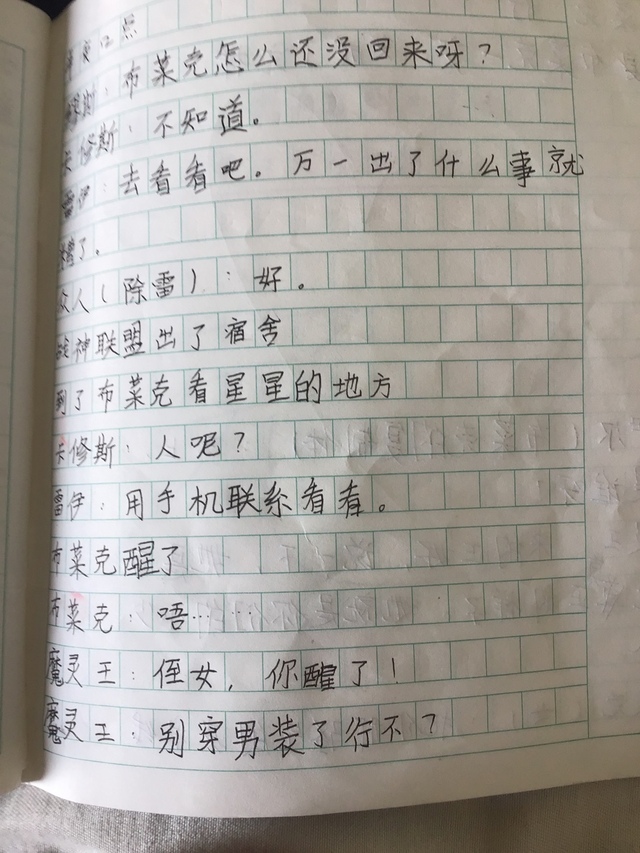 点
斯：布菜克怎么还没回来呀？
卡修斯：不知道。
雷伊：去看看吧。万一出了什么事就
了。
众人（除雷）：好。
战神联盟出了宿舍
到了布菜克看星星的地方
卡修斯：人呢？
雷伊：用手机联系看看。
布菜克醒了
布菜克：唔……
魔灵王：侄女，你醒了！
魔灵王：别穿男装了行不？